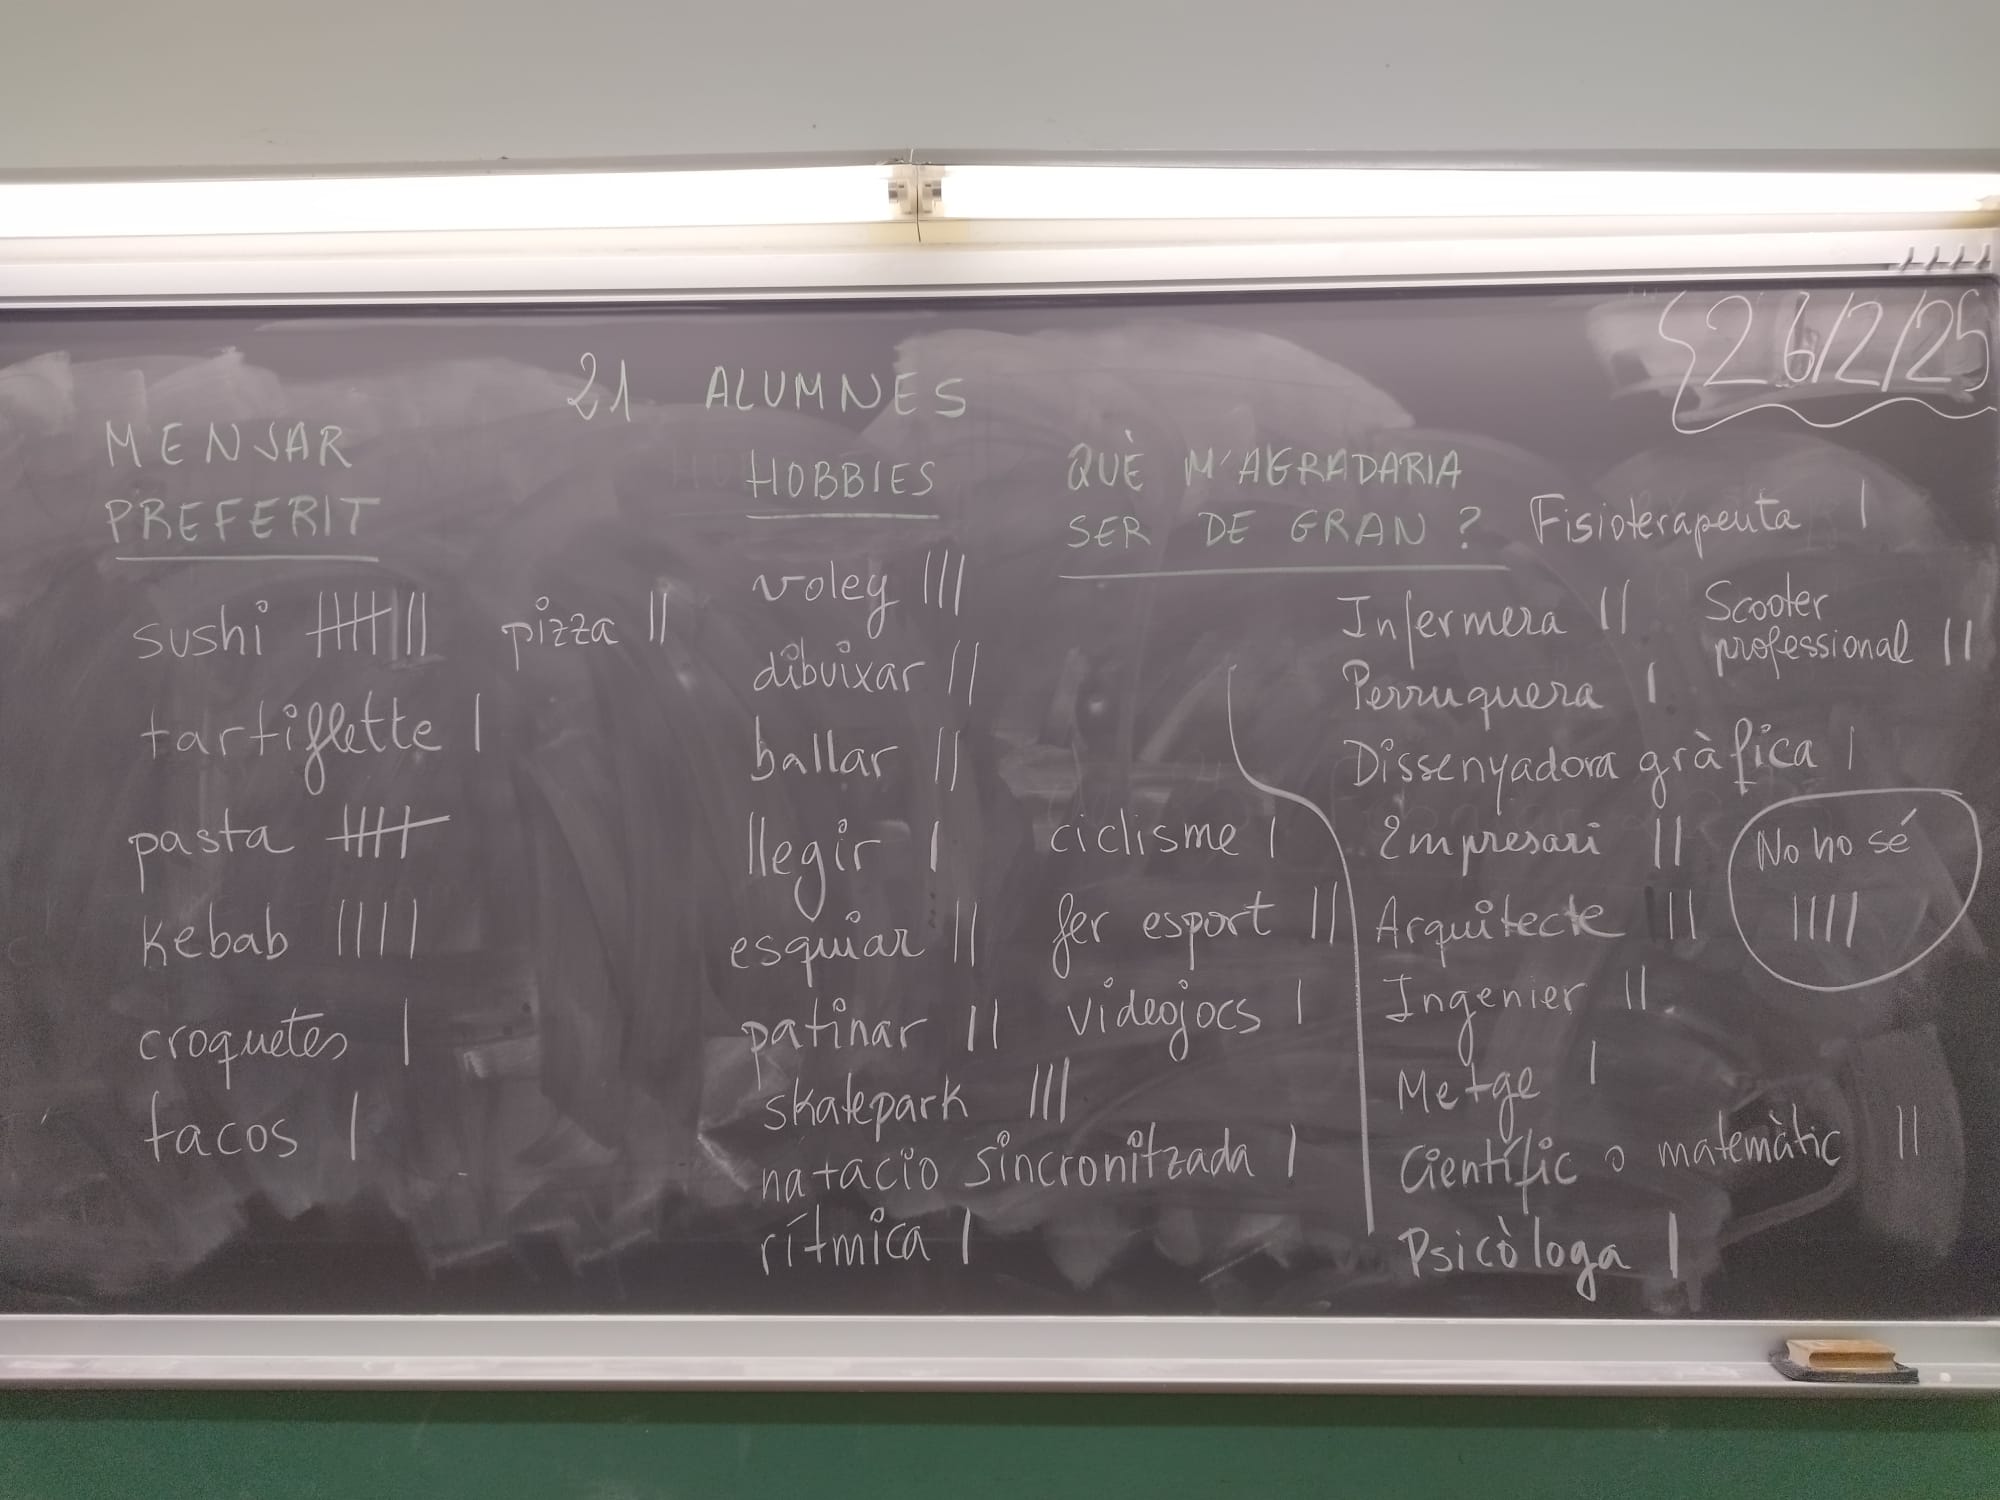 26/2/25
21 ALUMNES
MENJAR
PREFERIT
sushi |||| || pizza ||
tartiflette |
pasta ||||
kebab ||||
croquetes |
tacos |
HOBBIES
voley |||
dibuixar ||
ballar ||
llegir | ciclisme |
esquiar || fer esport ||
patinar || videojocs |
skatepark |||
natacio sincronitzada |
rítmica |
QUÈ M'AGRADARIA
SER DE GRAN?
Fisioterapeuta |
Infermera ||
Scooter
professional ||
Perruquera |
Dissenyadora gràfica |
Empresari ||
No ho sé
||||
Arquitecte ||
Ingenier ||
Metge |
Científic o matemàtic ||
Psicòloga |